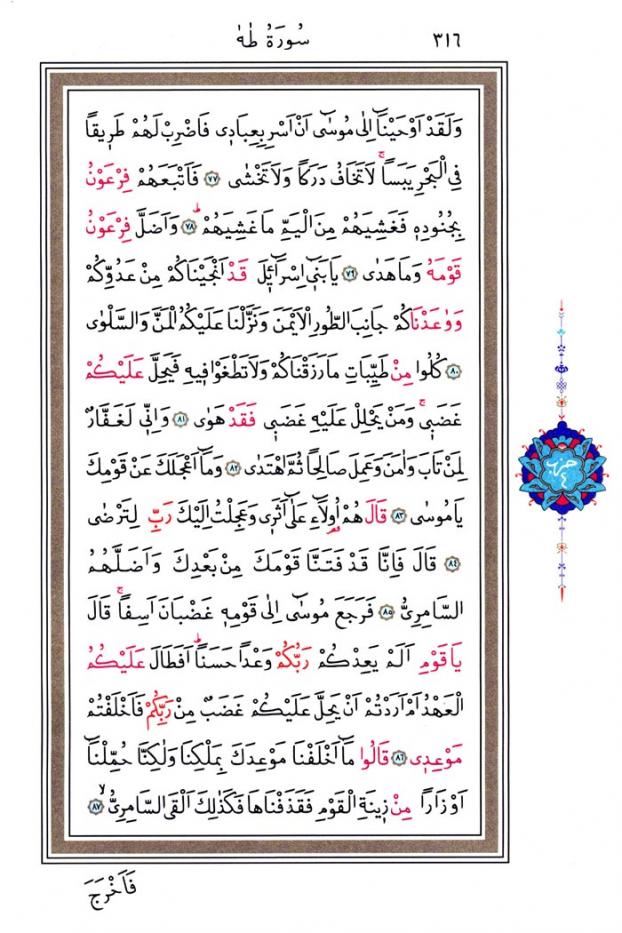 ٣١٦ سُورَةُ طٰهٰ
وَلَقَدْ اَوْحَيْنَٓا اِلٰى مُوسٰٓى اَنْ اَسْرِ بِعِبَادٖى فَاضْرِبْ لَهُمْ طَرٖيقًا
فِى الْبَحْرِ يَبَسًاۚ لَا تَخَافُ دَرَكًا وَلَا تَخْشٰى ﴿٧٧﴾ فَاَتْبَعَهُمْ فِرْعَوْنُ
بِجُنُودِهٖ فَغَشِيَهُمْ مِنَ الْيَمِّ مَا غَشِيَهُمْۜ ﴿٧٨﴾ وَاَضَلَّ فِرْعَوْنُ
قَوْمَهُ وَمَا هَدٰى ﴿٧٩﴾ يَا بَنٖٓى اِسْرَٓائٖلَ قَدْ اَنْجَيْنَاكُمْ مِنْ عَدُوِّكُمْ
وَوٰعَدْنَاكُمْ جَانِبَ الطُّورِ الْاَيْمَنَ وَنَزَّلْنَا عَلَيْكُمُ الْمَنَّ وَالسَّلْوٰى
﴿٨٠﴾ كُلُوا مِنْ طَيِّبَاتِ مَا رَزَقْنَاكُمْ وَلَا تَطْغَوْا فٖيهِ فَيَحِلَّ عَلَيْكُمْ
غَضَبٖىۚ وَمَنْ يَحْلِلْ عَلَيْهِ غَضَبٖى فَقَدْ هَوٰى ﴿٨١﴾ وَاِنّٖى لَغَفَّارٌ
لِمَنْ تَابَ وَاٰمَنَ وَعَمِلَ صَالِحًا ثُمَّ اهْتَدٰى ﴿٨٢﴾ وَمَٓا اَعْجَلَكَ عَنْ قَوْمِكَ
يَا مُوسٰى ﴿٨٣﴾ قَالَ هُمْ اُو۬لَٓاءِ عَلٰٓى اَثَرٖى وَعَجِلْتُ اِلَيْكَ رَبِّ لِتَرْضٰى
﴿٨٤﴾ قَالَ فَاِنَّا قَدْ فَتَنَّا قَوْمَكَ مِنْ بَعْدِكَ وَاَضَلَّهُمُ
السَّامِرِىُّ ﴿٨٥﴾ فَرَجَعَ مُوسٰٓى اِلٰى قَوْمِهٖ غَضْبَانَ اَسِفًاۚ قَالَ
يَا قَوْمِ اَلَمْ يَعِدْكُمْ رَبُّكُمْ وَعْدًا حَسَنًاۜ اَفَطَالَ عَلَيْكُمُ
الْعَهْدُ اَمْ اَرَدْتُمْ اَنْ يَحِلَّ عَلَيْكُمْ غَضَبٌ مِنْ رَبِّكُمْ فَاَخْلَفْتُمْ
مَوْعِدٖى ﴿٨٦﴾ قَالُوا مَٓا اَخْلَفْنَا مَوْعِدَكَ بِمَلْكِنَا وَلٰكِنَّا حُمِّلْنَٓا
اَوْزَارًا مِنْ زٖينَةِ الْقَوْمِ فَقَذَفْنَاهَا فَكَذٰلِكَ اَلْقَى السَّامِرِىُّۙ ﴿٨٧﴾
فَاَخْرَجَ
حزب ٤